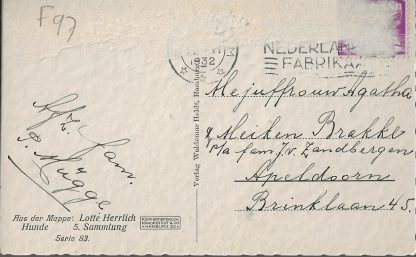 F97
1932
NEDERLAN
FABRIKA
Mejuffrouw Agatha
Meiken Brakke
p/a fam J. v. Zandbergen
Apeldoorn
Brinklaan 45.
Afz. Fam.
P. Mügge
Verlag Waldemar Heldt, Hamburg
Aus der Mappe: Lotte Herrlich
Hunde 5. Sammlung
Serie 83.
KUPFERTIEFDRUCK
KNACKSTEDT & CO
HAMBURG